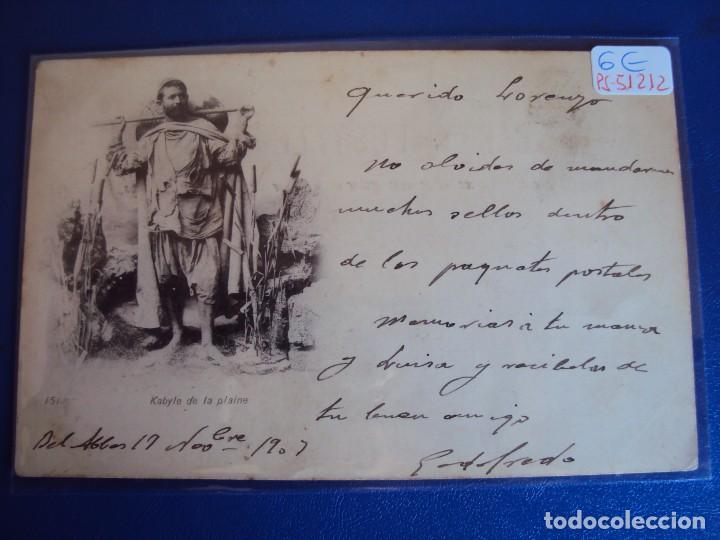 6€
PS-51212
Querido Lorenzo
No olvides de mandarme
muchos sellos dentro
de los paquetes postales
Memorias a tu mama
y Luisa y recibelas de
tu buen amigo
Godofredo
151
Kabyle de la plaine
Bel Abbes 17 Novbre 1907
todocoleccion.net